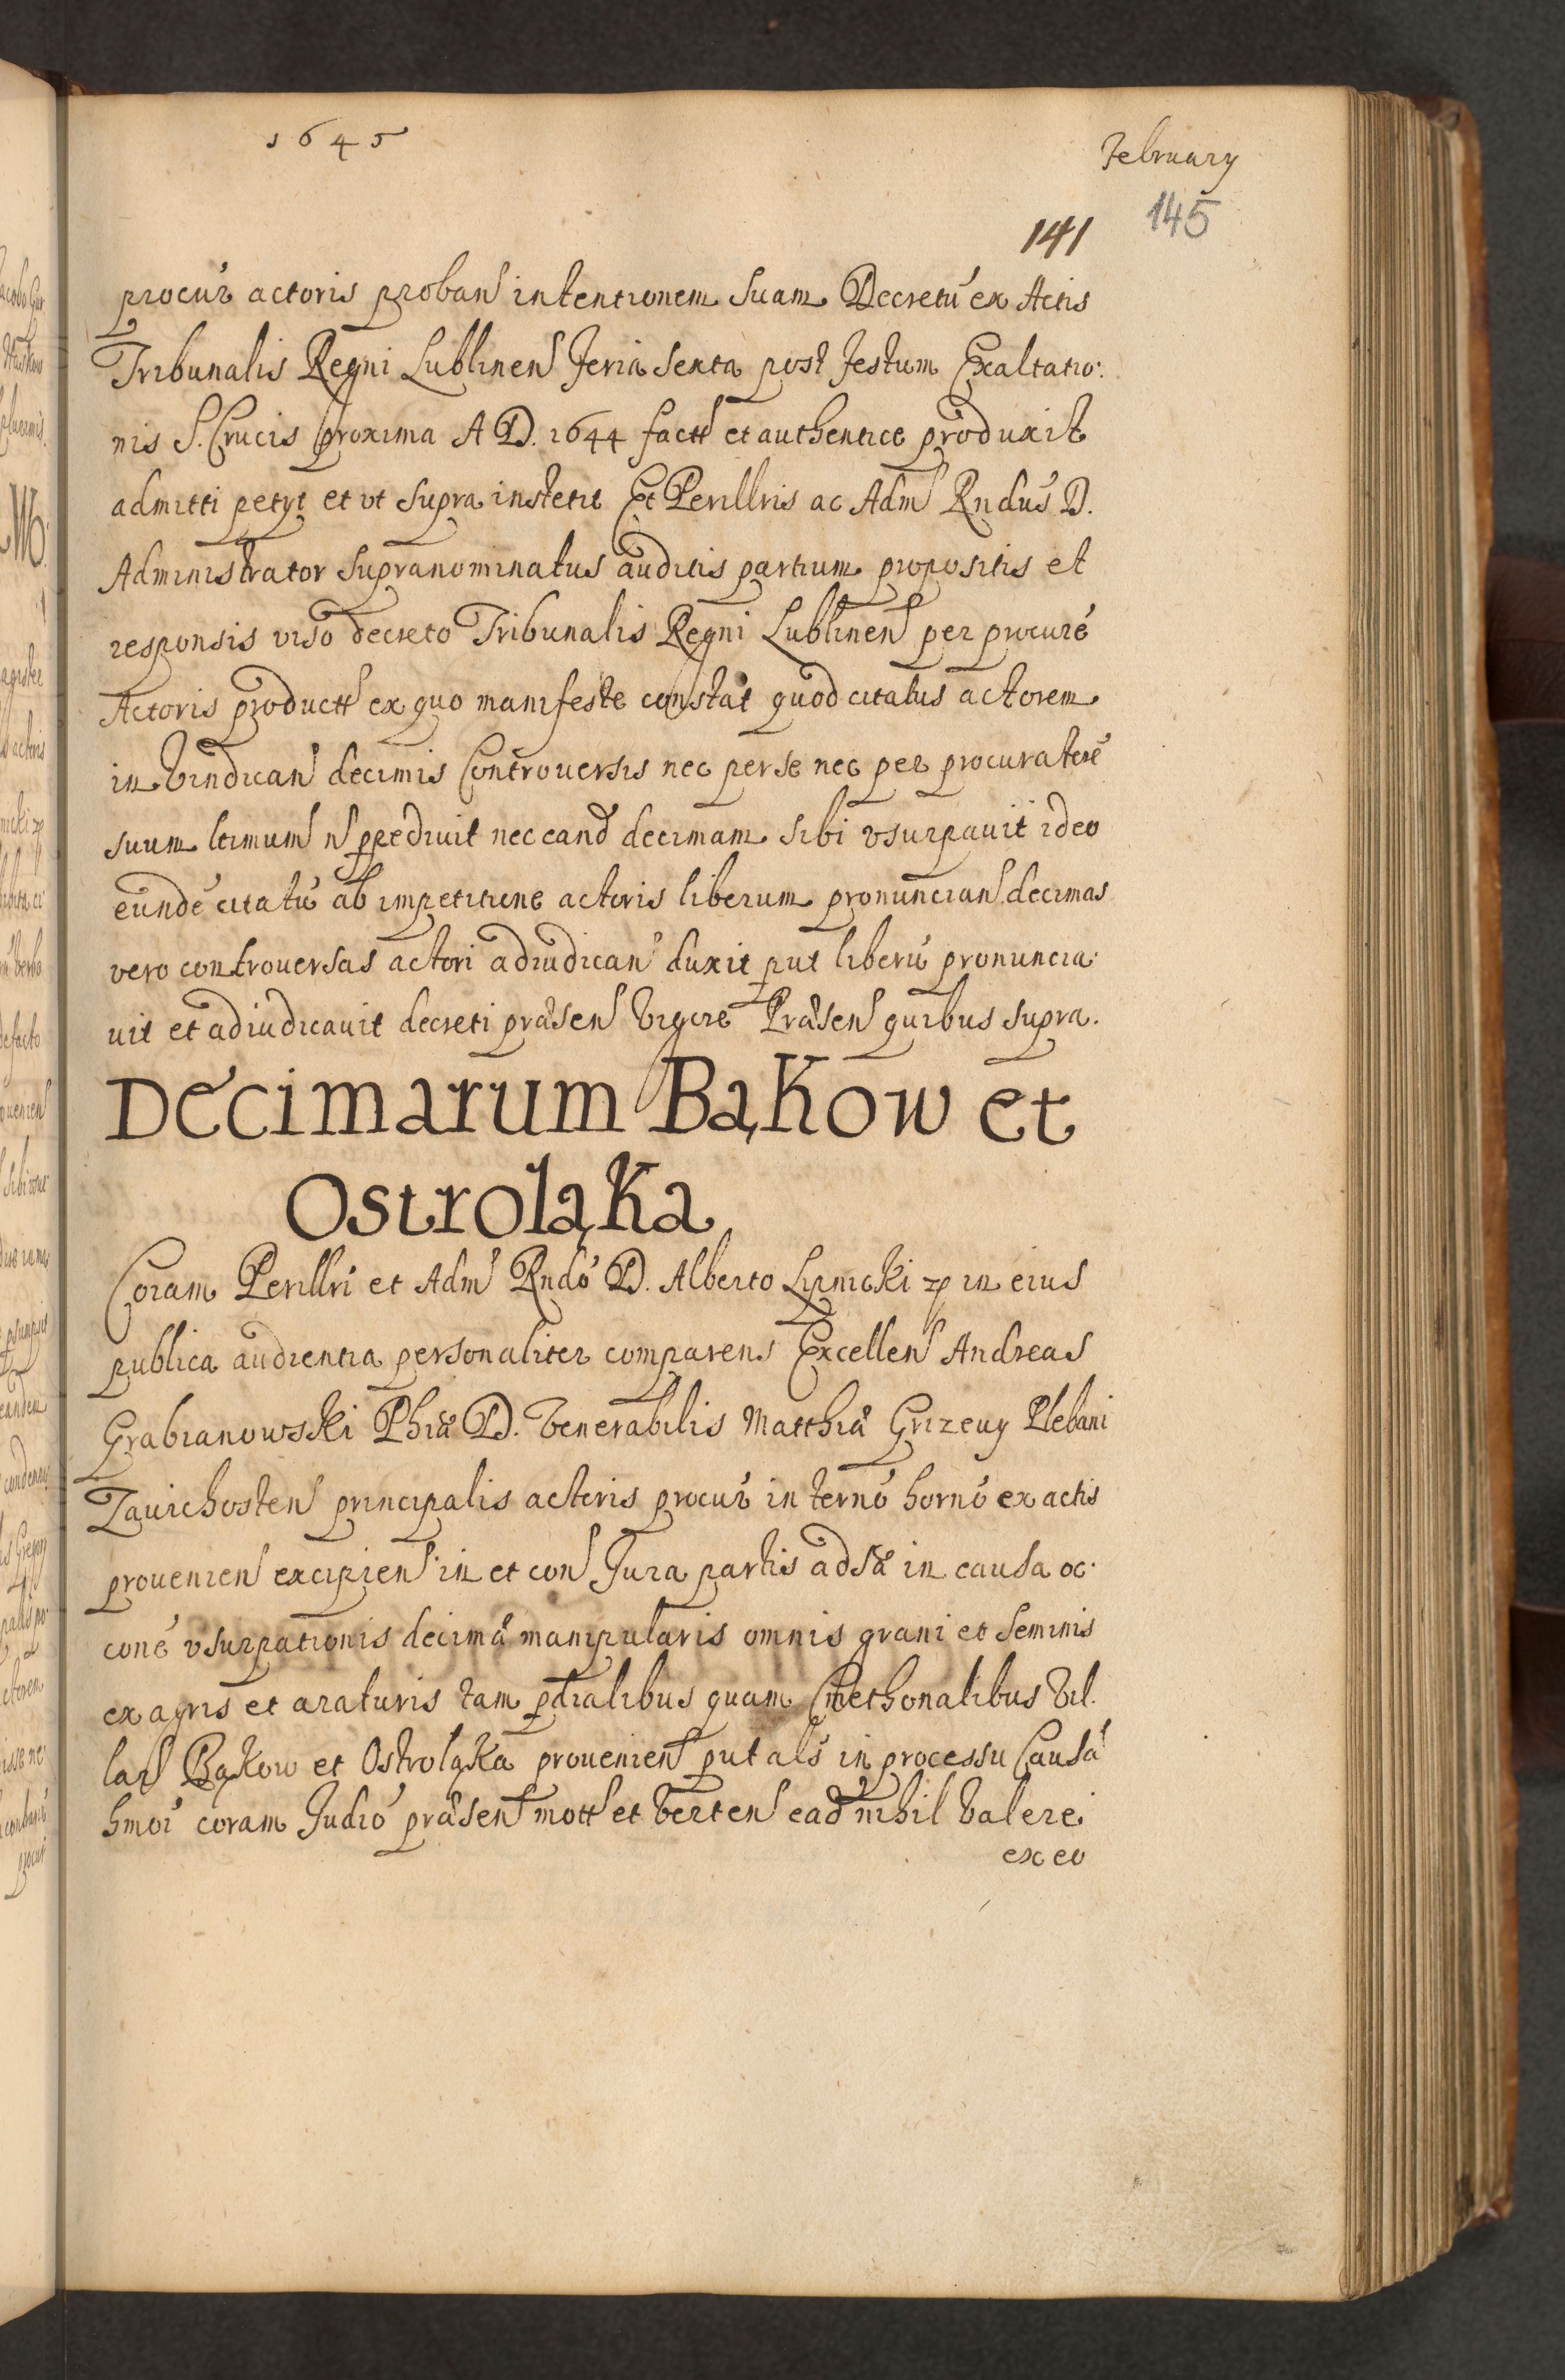 1645
February
141 145
procur actoris proban intentionem suam Decretu ex Actis
Tribunalis Regni Lublinen Feria sexta post festum Exaltatio:
nis S. Crucis proxima A D. 1644 factt et authentice produxit
admitti petyt et vt supra instetit Et Perillris ac Adm Rndus D.
Administrator supranominatus auditis partium propositis et
responsis viso decreto Tribunalis Regni Lublinen per procure
Actoris productt ex quo manifeste constat quod citatus actorem
in Vindican decimis Controuersis nec per se nec per procuratore
suum ltimum n prpedivit nec eand decimam sibi vsurpauit ideo
eunde citatu ab impetitione actoris liberum pronuncian decimas
vero controuersas actori adiudican duxit put liberu pronuncia:
uit et adiudicauit decreti præsen Vigore Præsen quibus supra.
Decimarum Bąkow et
Ostroląka
Coram Perillri et Adm Rndo D. Alberto Lipnicki zp in eius
publica audientia personaliter comparens Excellen Andreas
Grabianowski Phiæ D. Venerabilis Matthiæ Grizeuy Plebani
Zavichosten principalis actoris procur in terno horno ex actis
prouenien excipien in et con Jura partis adsæ in causa oc:
cone vsurpationis decimæ manipularis omnis grani et seminis
ex agris et araturis tam pdialibus quam Cmethonalibus Vil:
lar Bąkow et Ostroląka prouenien put als in processu Causæ
hmoi coram Judio præsen mott et Verten ead nihil Valere
ex eo